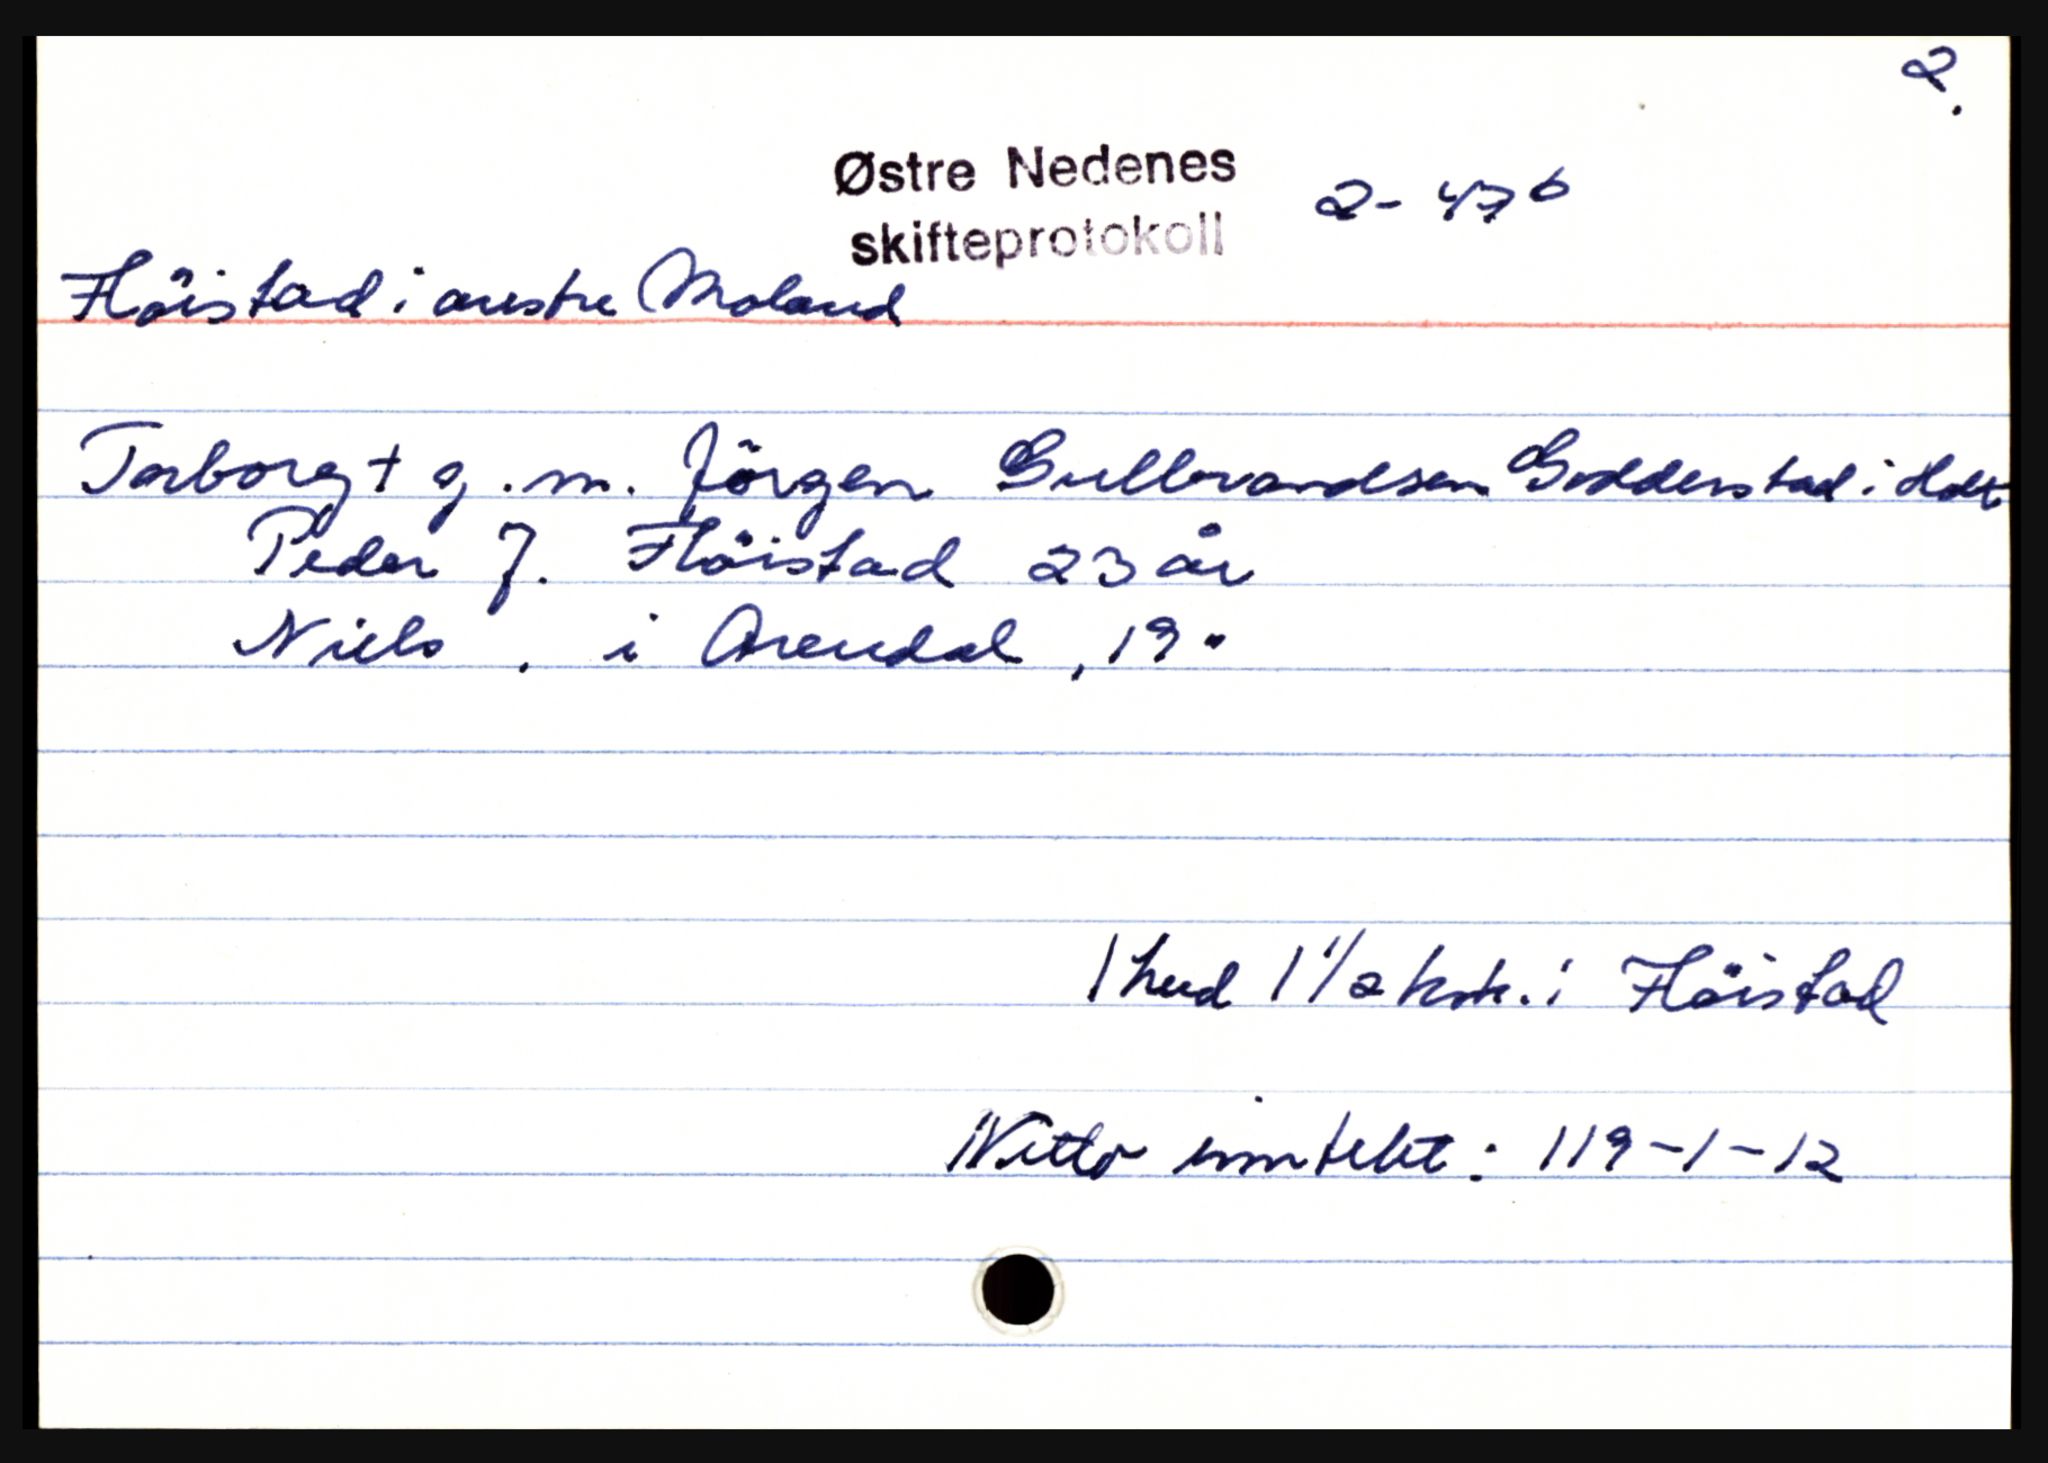 2.
Østre Nedenes
skifteprotokoll 2-47 b
Flöistad i austre Moland
Torborg + g.m. Jörgen Gullbrandsen Godderstad i Holt
Peder J. Flöistad 23 år
Niels , i Arendal , 19 "
1 hud 1 1/2 ksk. i Flöistad
Netto inntekt: 119-1-12